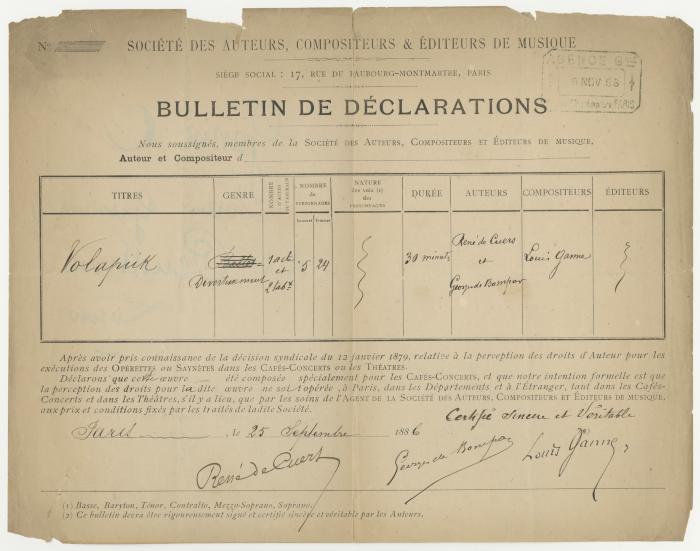 No
SOCIÉTÉ DES AUTEURS, COMPOSITEURS & ÉDITEURS DE MUSIQUE
SIÈGE SOCIAL : 17, RUE DU FAUBOURG-MONTMARTRE, PARIS
AGENCE Gle
NOV 86
PARIS
BULLETIN DE DÉCLARATIONS
Nous soussignés, membres de la SOCIÉTÉ DES AUTEURS, COMPOSITEURS ET ÉDITEURS DE MUSIQUE,
Auteur et Compositeur d
TITRES GENRE NOMBRE D'ACTES OU TABLEAUX NOMBRE de PERSONNAGES NATURE des voix (1) des PERSONNAGES DURÉE AUTEURS COMPOSITEURS ÉDITEURS
hommes femmes
Volapük Divertissement 1 acte et 2 tabx 5 24 30 minutes René de Cuers et Georges de Bompar Louis Ganne
Après avoir pris connaissance de la décision syndicale du 12 janvier 1879, relative à la perception des droits d'Auteur pour les
exécutions des OPÉRETTES ou SAYNÈTES dans les CAFÉS-CONCERTS ou les THÉATRES.
Déclarons que cette œuvre été composée spécialement pour les CAFÉS-CONCERTS, et que notre intention formelle est que
la perception des droits pour la dite œuvre ne soit opérée, à Paris, dans les Départements et à l'Étranger, tant dans les Cafés-
Concerts et dans les Théâtres, s'il y a lieu, que par les soins de l'AGENT DE LA SOCIÉTÉ DES AUTEURS, COMPOSITEURS ET ÉDITEURS DE MUSIQUE,
aux prix et conditions fixés par les traités de ladite Société.
Certifié Sincère et Véritable
Paris, le 25 Septembre 1886
René de Cuers Georges de Bompar Louis Ganne
(1) Basse, Baryton, Ténor, Contralto, Mezzo-Soprano, Soprano.
(2) Ce bulletin devra être rigoureusement signé et certifié sincère et véritable par les Auteurs.